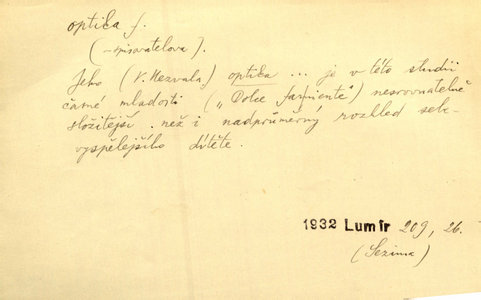 optika f.
(~spisovatelova).
Jeho (V. Nezvala) optika ... je v této studii
čarné mladosti („Dolce farniente“) nesrovnatelně
složitější než i nadprůměrný rozhled sebe-
vyspělejšího dítěte.
1932 Lumír 209, 26.
(Sezima)